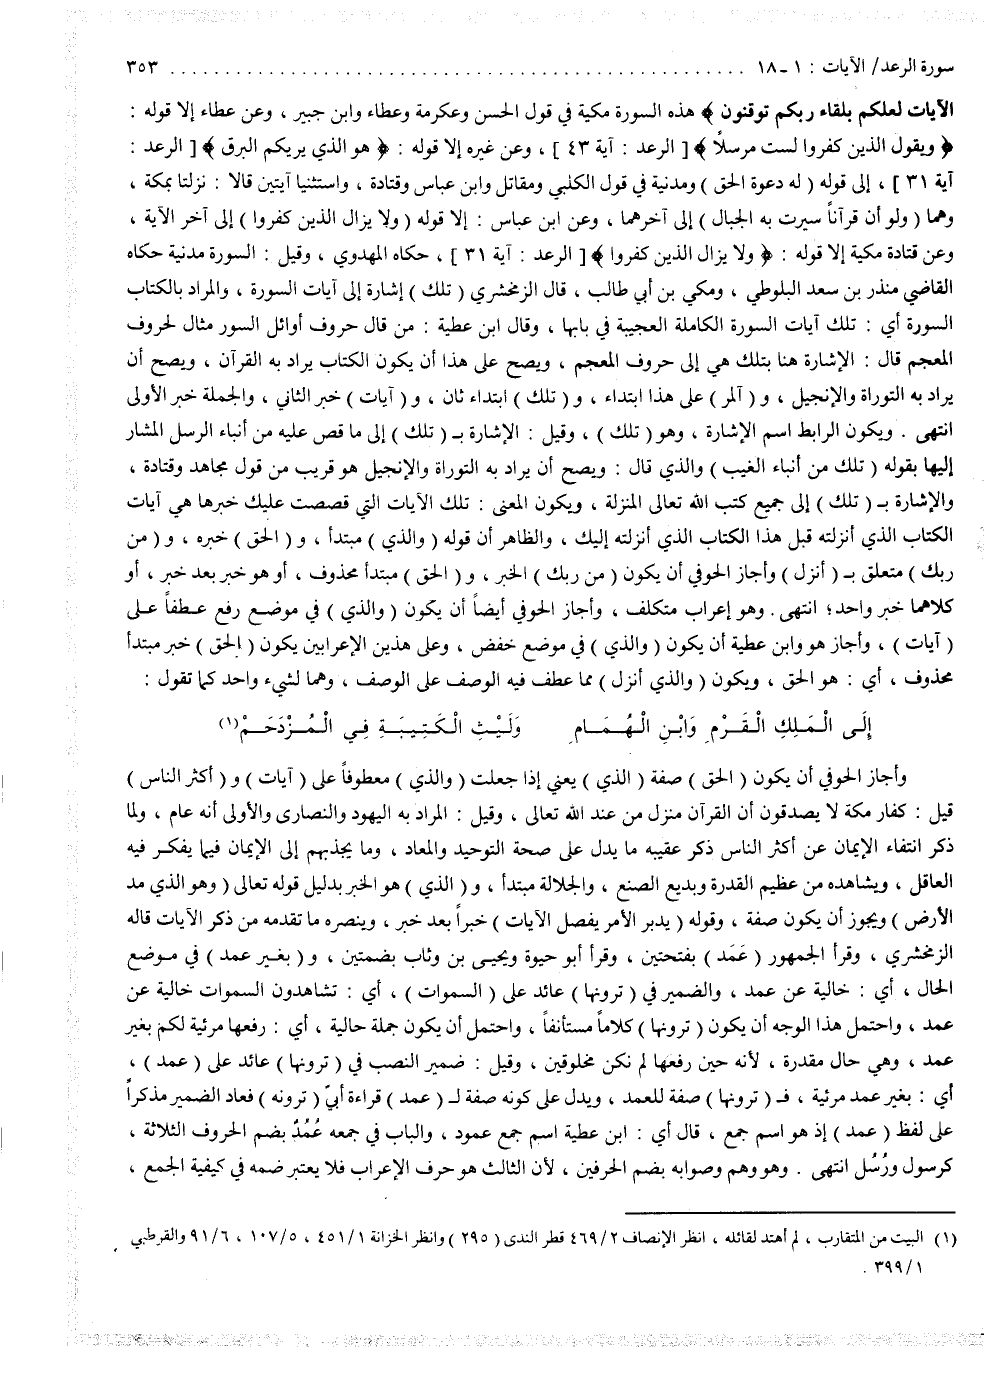 سورة الرعد/ الآيات : ١ ـ ١٨ ........................................................ ٣٥٣
الآيات لعلكم بلقاء ربكم توقنون ﴾ هذه السورة مكية في قول الحسن وعكرمة وعطاء وابن جبير ، وعن عطاء إلا قوله :
﴿ ويقول الذين كفروا لست مرسلاً ﴾ [ الرعد : آية ٤٣ ] ، وعن غيره إلا قوله : ﴿ هو الذي يريكم البرق ﴾ [ الرعد :
آية ٣١ ] ، إلى قوله ( له دعوة الحق ) ومدنية في قول الكلبي ومقاتل وابن عباس وقتادة ، واستثنيا آيتين قالا : نزلتا بمكة ،
وهما ( ولو أن قرآناً سيرت به الجبال ) إلى آخرهما ، وعن ابن عباس : إلا قوله ( ولا يزال الذين كفروا ) إلى آخر الآية ،
وعن قتادة مكية إلا قوله : ﴿ ولا يزال الذين كفروا ﴾ [ الرعد : آية ٣١ ] ، حكاه المهدوي ، وقيل : السورة مدنية حكاه
القاضي منذر بن سعد البلوطي ، ومكي بن أبي طالب ، قال الزمخشري ( تلك ) إشارة إلى آيات السورة ، والمراد بالكتاب
السورة أي : تلك آيات السورة الكاملة العجيبة في بابها ، وقال ابن عطية : من قال حروف أوائل السور مثال لحروف
المعجم قال : الإشارة هنا بتلك هي إلى حروف المعجم ، ويصح على هذا أن يكون الكتاب يراد به القرآن ، ويصح أن
يراد به التوراة والإنجيل ، و ( آلمر ) على هذا ابتداء ، و ( تلك ) ابتداء ثان ، و ( آيات ) خبر الثاني ، والجملة خبر الأولى
انتهى . ويكون الرابط اسم الإشارة ، وهو ( تلك ) ، وقيل : الإشارة بـ ( تلك ) إلى ما قص عليه من أنباء الرسل المشار
إليها بقوله ( تلك من أنباء الغيب ) والذي قال : ويصح أن يراد به التوراة والإنجيل هو قريب من قول مجاهد وقتادة ،
والإشارة بـ ( تلك ) إلى جميع كتب الله تعالى المنزلة ، ويكون المعنى : تلك الآيات التي قصصت عليك خبرها هي آيات
الكتاب الذي أنزلته قبل هذا الكتاب الذي أنزلته إليك ، والظاهر أن قوله ( والذي ) مبتدأ ، و ( الحق ) خبره ، و ( من
ربك ) متعلق بـ ( أنزل ) وأجاز الحوفي أن يكون ( من ربك ) الخبر ، و ( الحق ) مبتدأ محذوف ، أو هو خبر بعد خبر ، أو
كلاهما خبر واحد؛ انتهى . وهو إعراب متكلف ، وأجاز الحوفي أيضاً أن يكون ( والذي ) في موضع رفع عطفاً على
( آيات ) ، وأجاز هو وابن عطية أن يكون ( والذي ) في موضع خفض ، وعلى هذين الإعرابين يكون ( الحق ) خبر مبتدأ
محذوف ، أي : هو الحق ، ويكون ( والذي أنزل ) مما عطف فيه الوصف على الوصف ، وهما لشيء واحد كما تقول :
إِلَى الْمَلِكِ الْقَرْمِ وَابْنِ الْهُمَامِ    وَلَيْثِ الْكَتِيبَةِ فِي الْمُزْدَحَمْ(١)
وأجاز الحوفي أن يكون ( الحق ) صفة ( الذي ) يعني إذا جعلت ( والذي ) معطوفاً على ( آيات ) و ( أكثر الناس )
قيل : كفار مكة لا يصدقون أن القرآن منزل من عند الله تعالى ، وقيل : المراد به اليهود والنصارى والأولى أنه عام ، ولما
ذكر انتفاء الإيمان عن أكثر الناس ذكر عقيبه ما يدل على صحة التوحيد والمعاد ، وما يجذبهم إلى الإيمان فيما يفكر فيه
العاقل ، ويشاهده من عظيم القدرة وبديع الصنع ، والجلالة مبتدأ ، و ( الذي ) هو الخبر بدليل قوله تعالى ( وهو الذي مد
الأرض ) ويجوز أن يكون صفة ، وقوله ( يدبر الأمر يفصل الآيات ) خبراً بعد خبر ، وينصره ما تقدمه من ذكر الآيات قاله
الزمخشري ، وقرأ الجمهور ( عَمَد ) بفتحتين ، وقرأ أبو حيوة ويحيى بن وثاب بضمتين ، و ( بغير عمد ) في موضع
الحال ، أي : خالية عن عمد ، والضمير في ( ترونها ) عائد على ( السموات ) ، أي : تشاهدون السموات خالية عن
عمد ، واحتمل هذا الوجه أن يكون ( ترونها ) كلاماً مستأنفاً ، واحتمل أن يكون جملة حالية ، أي : رفعها مرئية لكم بغير
عمد ، وهي حال مقدرة ، لأنه حين رفعها لم نكن مخلوقين ، وقيل : ضمير النصب في ( ترونها ) عائد على ( عمد ) ،
أي : بغير عمد مرئية ، فـ ( ترونها ) صفة للعمد ، ويدل على كونه صفة لـ ( عمد ) قراءة أبيّ ( ترونه ) فعاد الضمير مذكراً
على لفظ ( عمد ) إذ هو اسم جمع ، قال أي : ابن عطية اسم جمع عمود ، والباب في جمعه عُمُدٌ بضم الحروف الثلاثة ،
كرسول ورُسُل انتهى . وهو وهم وصوابه بضم الحرفين ، لأن الثالث هو حرف الإعراب فلا يعتبر ضمه في كيفية الجمع ،
(١) البيت من المتقارب ، لم أهتد لقائله ، انظر الإنصاف ٤٦٩/٢ قطر الندى ( ٢٩٥ ) وانظر الخزانة ٤٥١/١ ، ١٠٧/٥ ، ٩١/٦ والقرطبي
٣٩٩/١ .